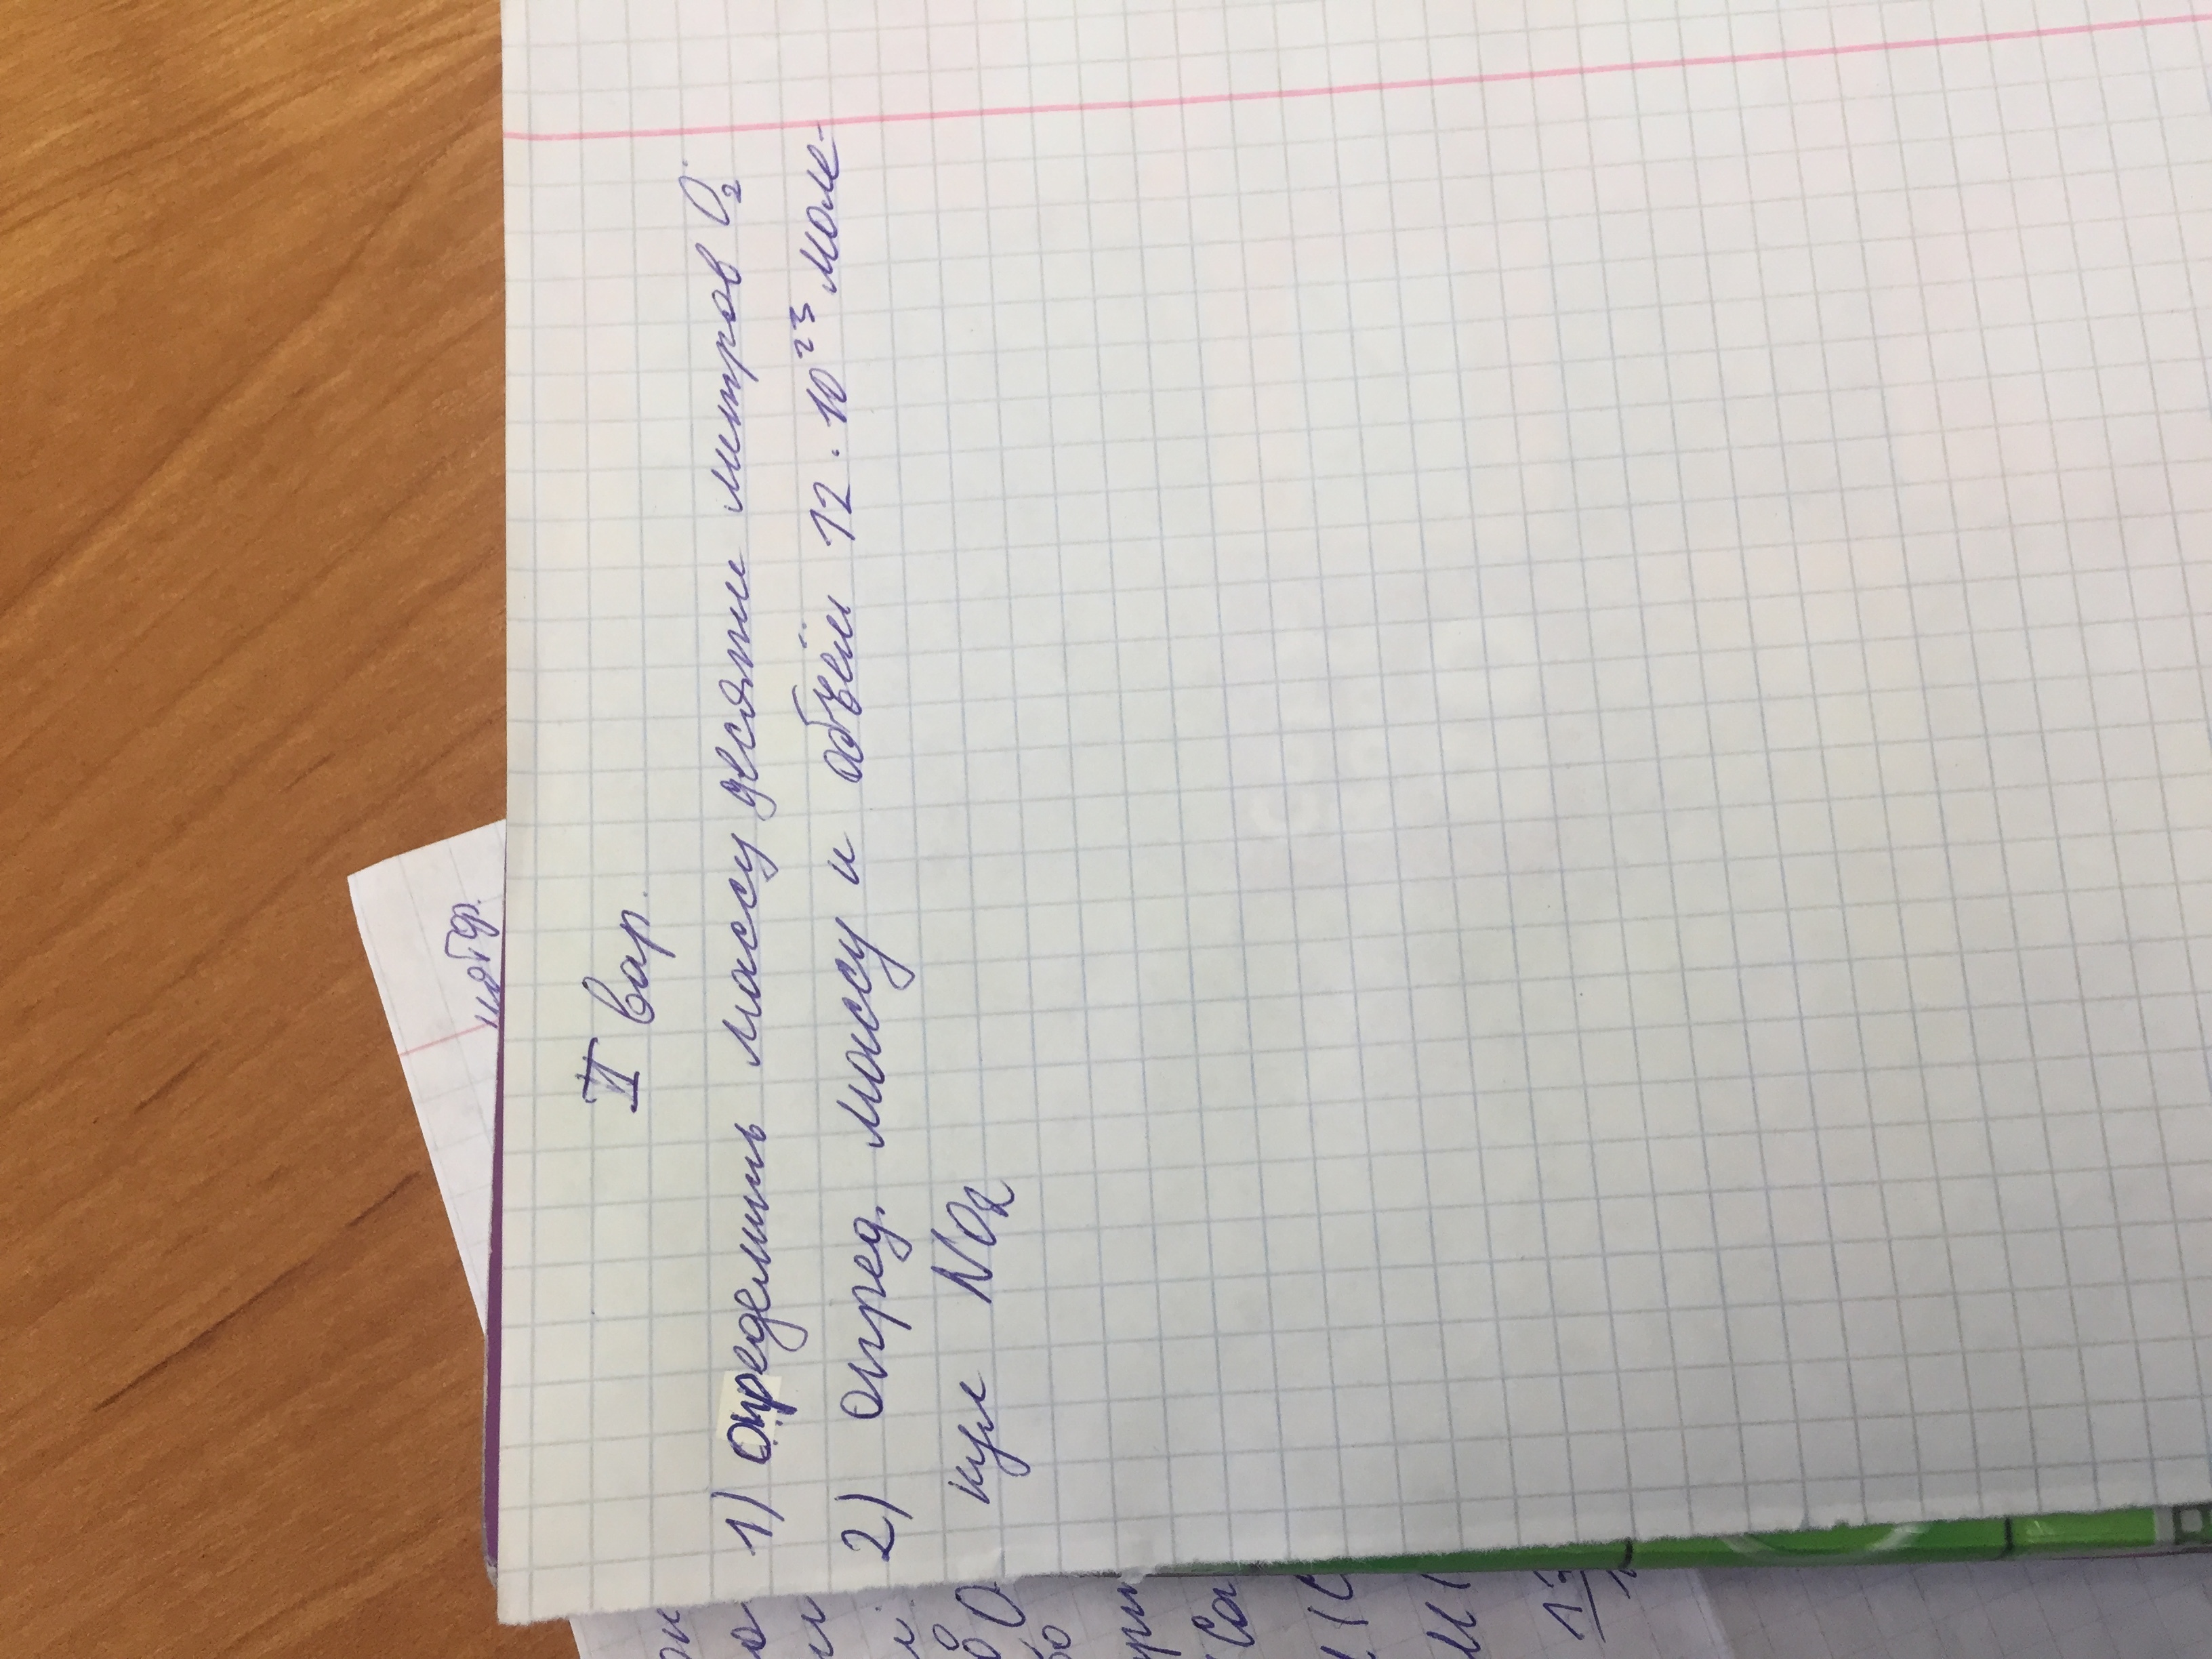 II вар.
1) Определить массу десяти литров O₂.
2) опред. массу и объём 12 · 10²³ моле-
кул NO₂